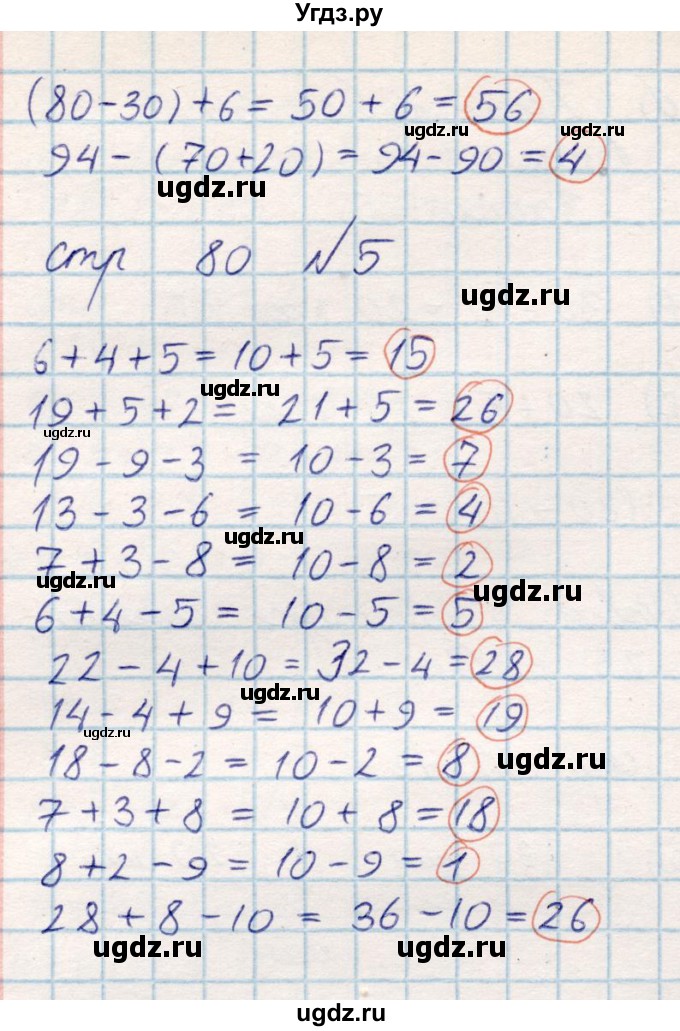 Угдз.ру
(80-30)+6= 50+6=56
ugdz.ru ugdz.ru
94-(70+20)=94-90=4
ugdz.ru
стр 80 №5
ugdz.ru
6+4+5=10+5=15
ugdz.ru
19+5+2= 21+5=26
ugdz.ru
19-9-3 = 10-3=7
13-3-6 = 10-6=4
ugdz.ru
7+3-8= 10-8=2
ugdz.ru ugdz.ru
6+4-5= 10-5=5
22-4+10=32-4=28
ugdz.ru
14-4+9= 10+9=19
ugdz.ru
18-8-2=10-2=8
ugdz.ru
7+3+8 = 10+8=18
8+2-9=10-9=1
28+8-10 = 36-10=26
ugdz.ru ugdz.ru
ugdz.ru